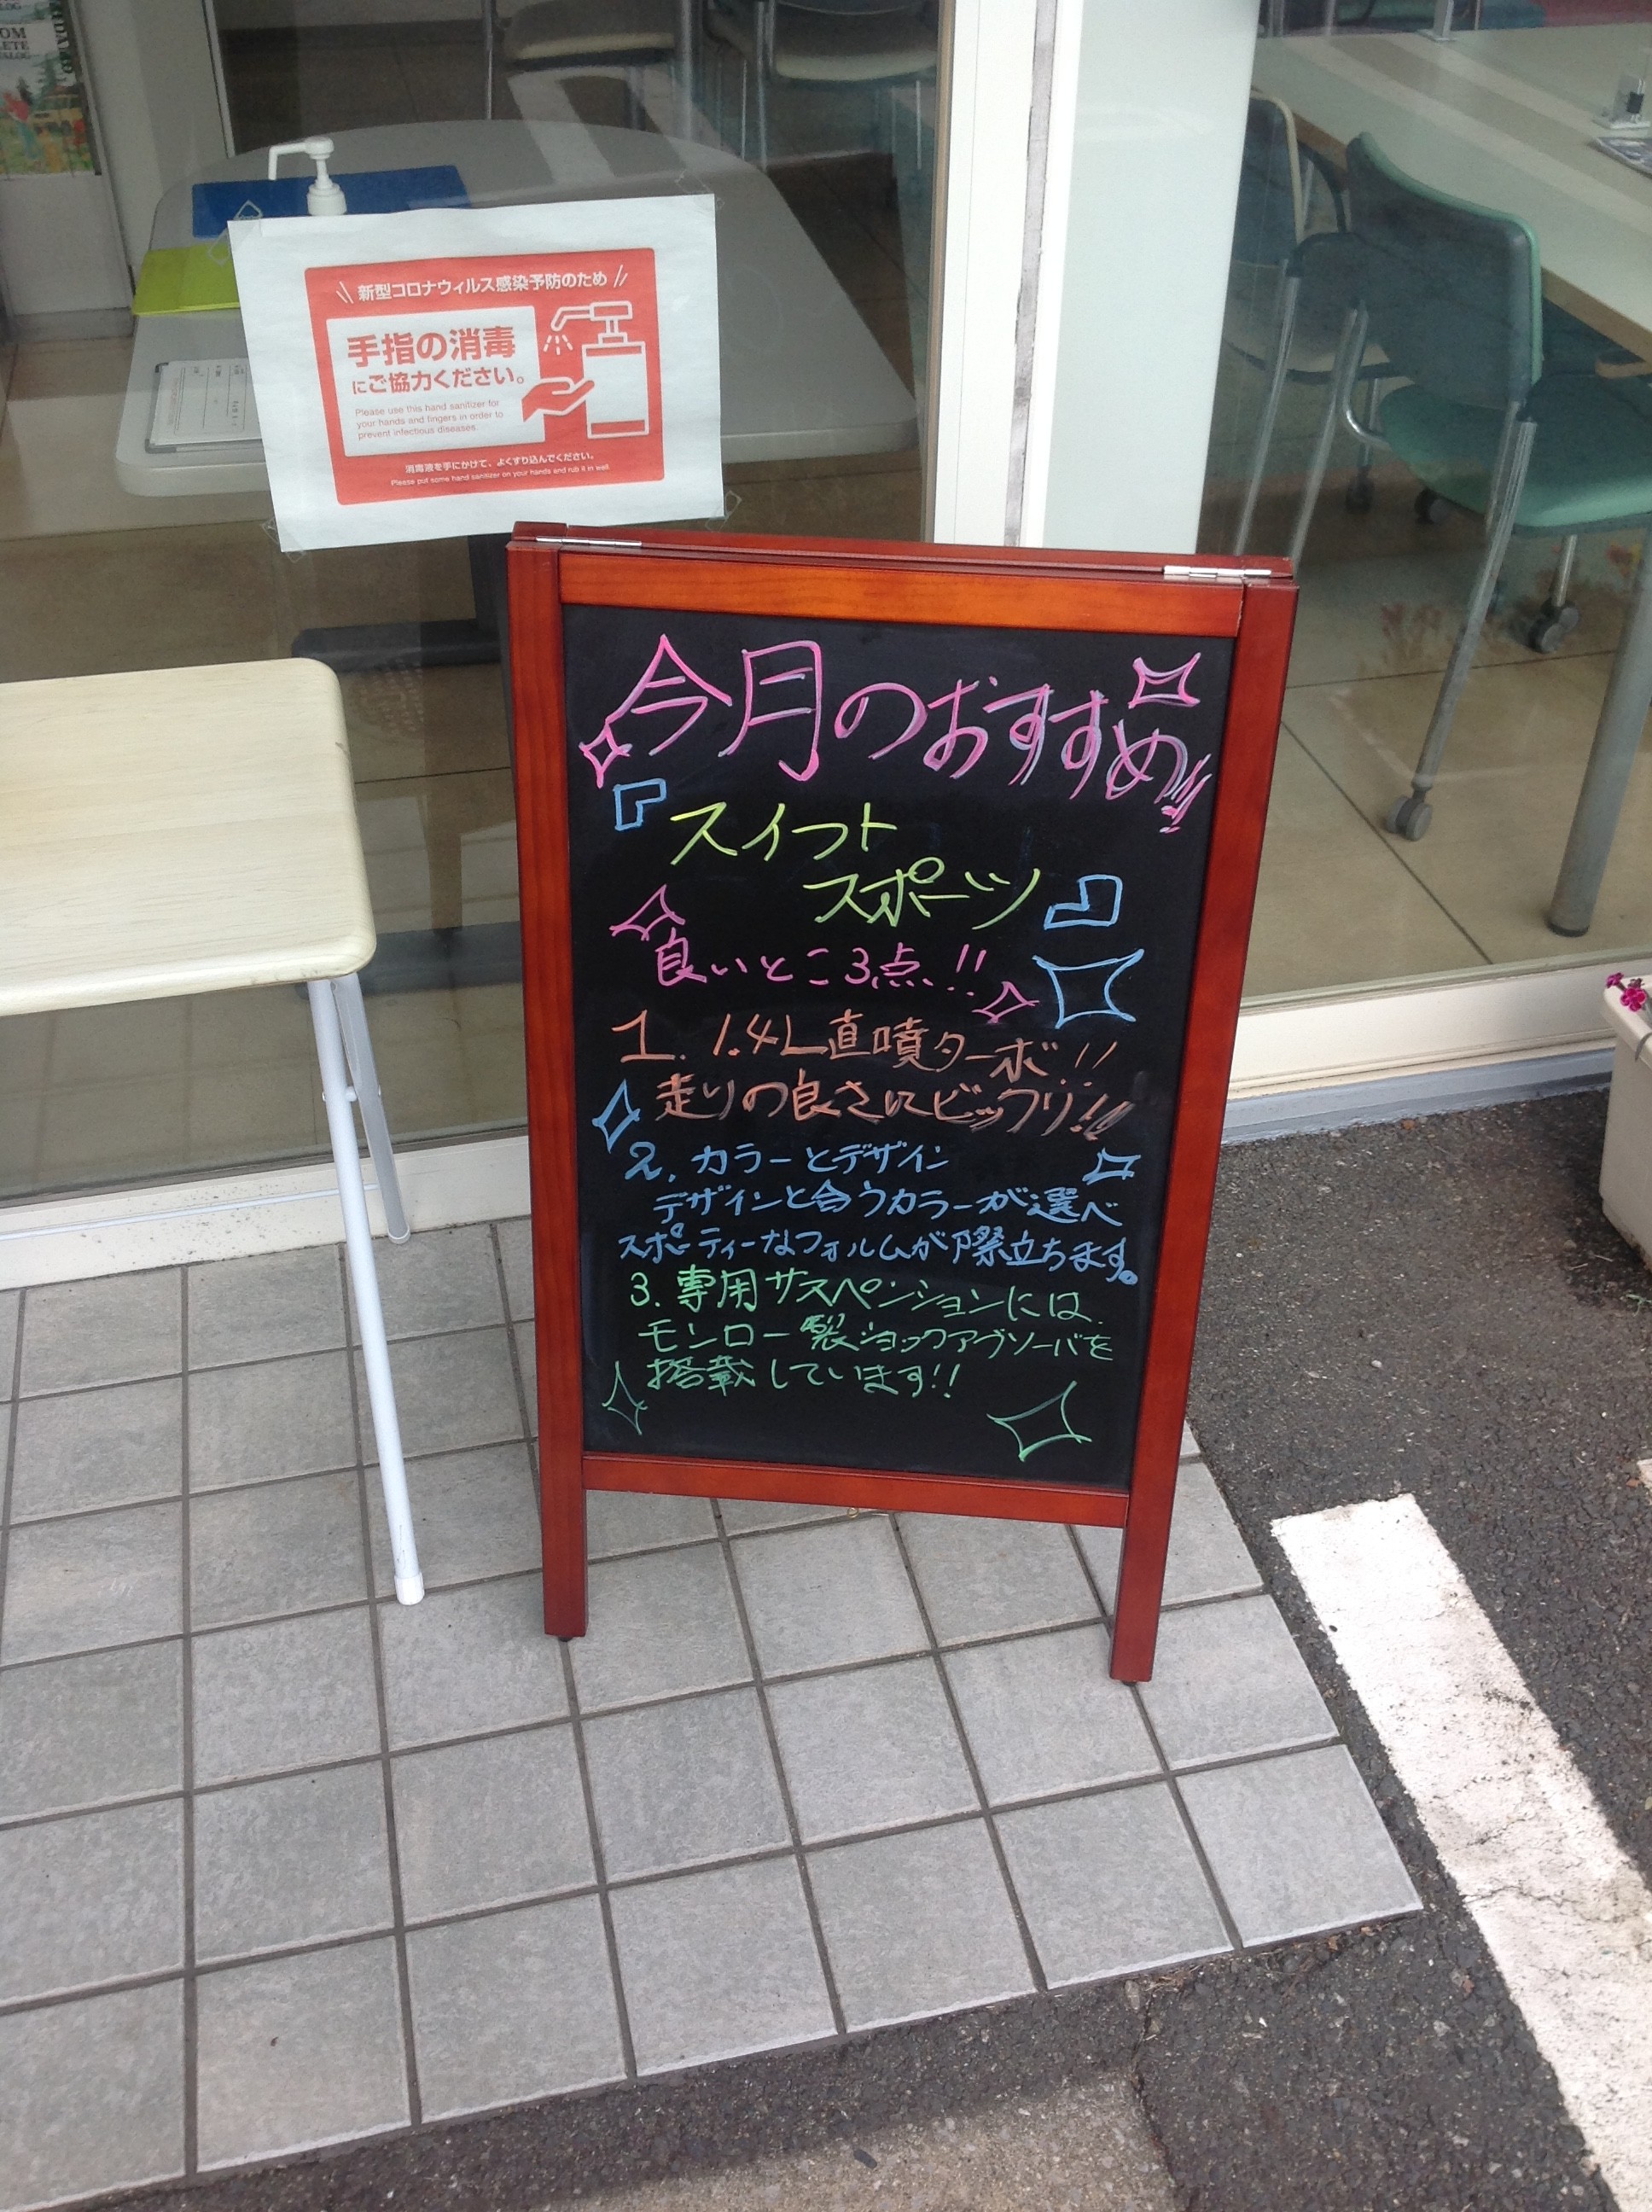 OM
LETE
ALOG
\\ 新型コロナウィルス感染予防のため //
手指の消毒
にご協力ください。
Please use this hand sanitizer for
your hands and fingers in order to
prevent infectious diseases.
消毒液を手にかけて、よくすり込んでください。
Please put some hand sanitizer on your hands and rub it in well.
今月のおすすめ!!
「スイフト
スポーツ」
良いところ3点!!
1. 1.4L直噴ターボ!!
走りの良さにビックリ!!
2. カラーとデザイン
デザインと合うカラーが選べ
スポーティーなフォルムが際立ちます。
3. 専用サスペンションには
モンロー製ショックアブソーバを
搭載しています!!